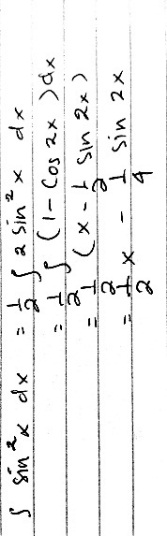 ∫ sin²x dx = 1/2 ∫ 2 sin²x dx
= 1/2 ∫ (1 - Cos 2x) dx
= 1/2 (x - 1/2 sin 2x)
= 1/2 x - 1/4 sin 2x